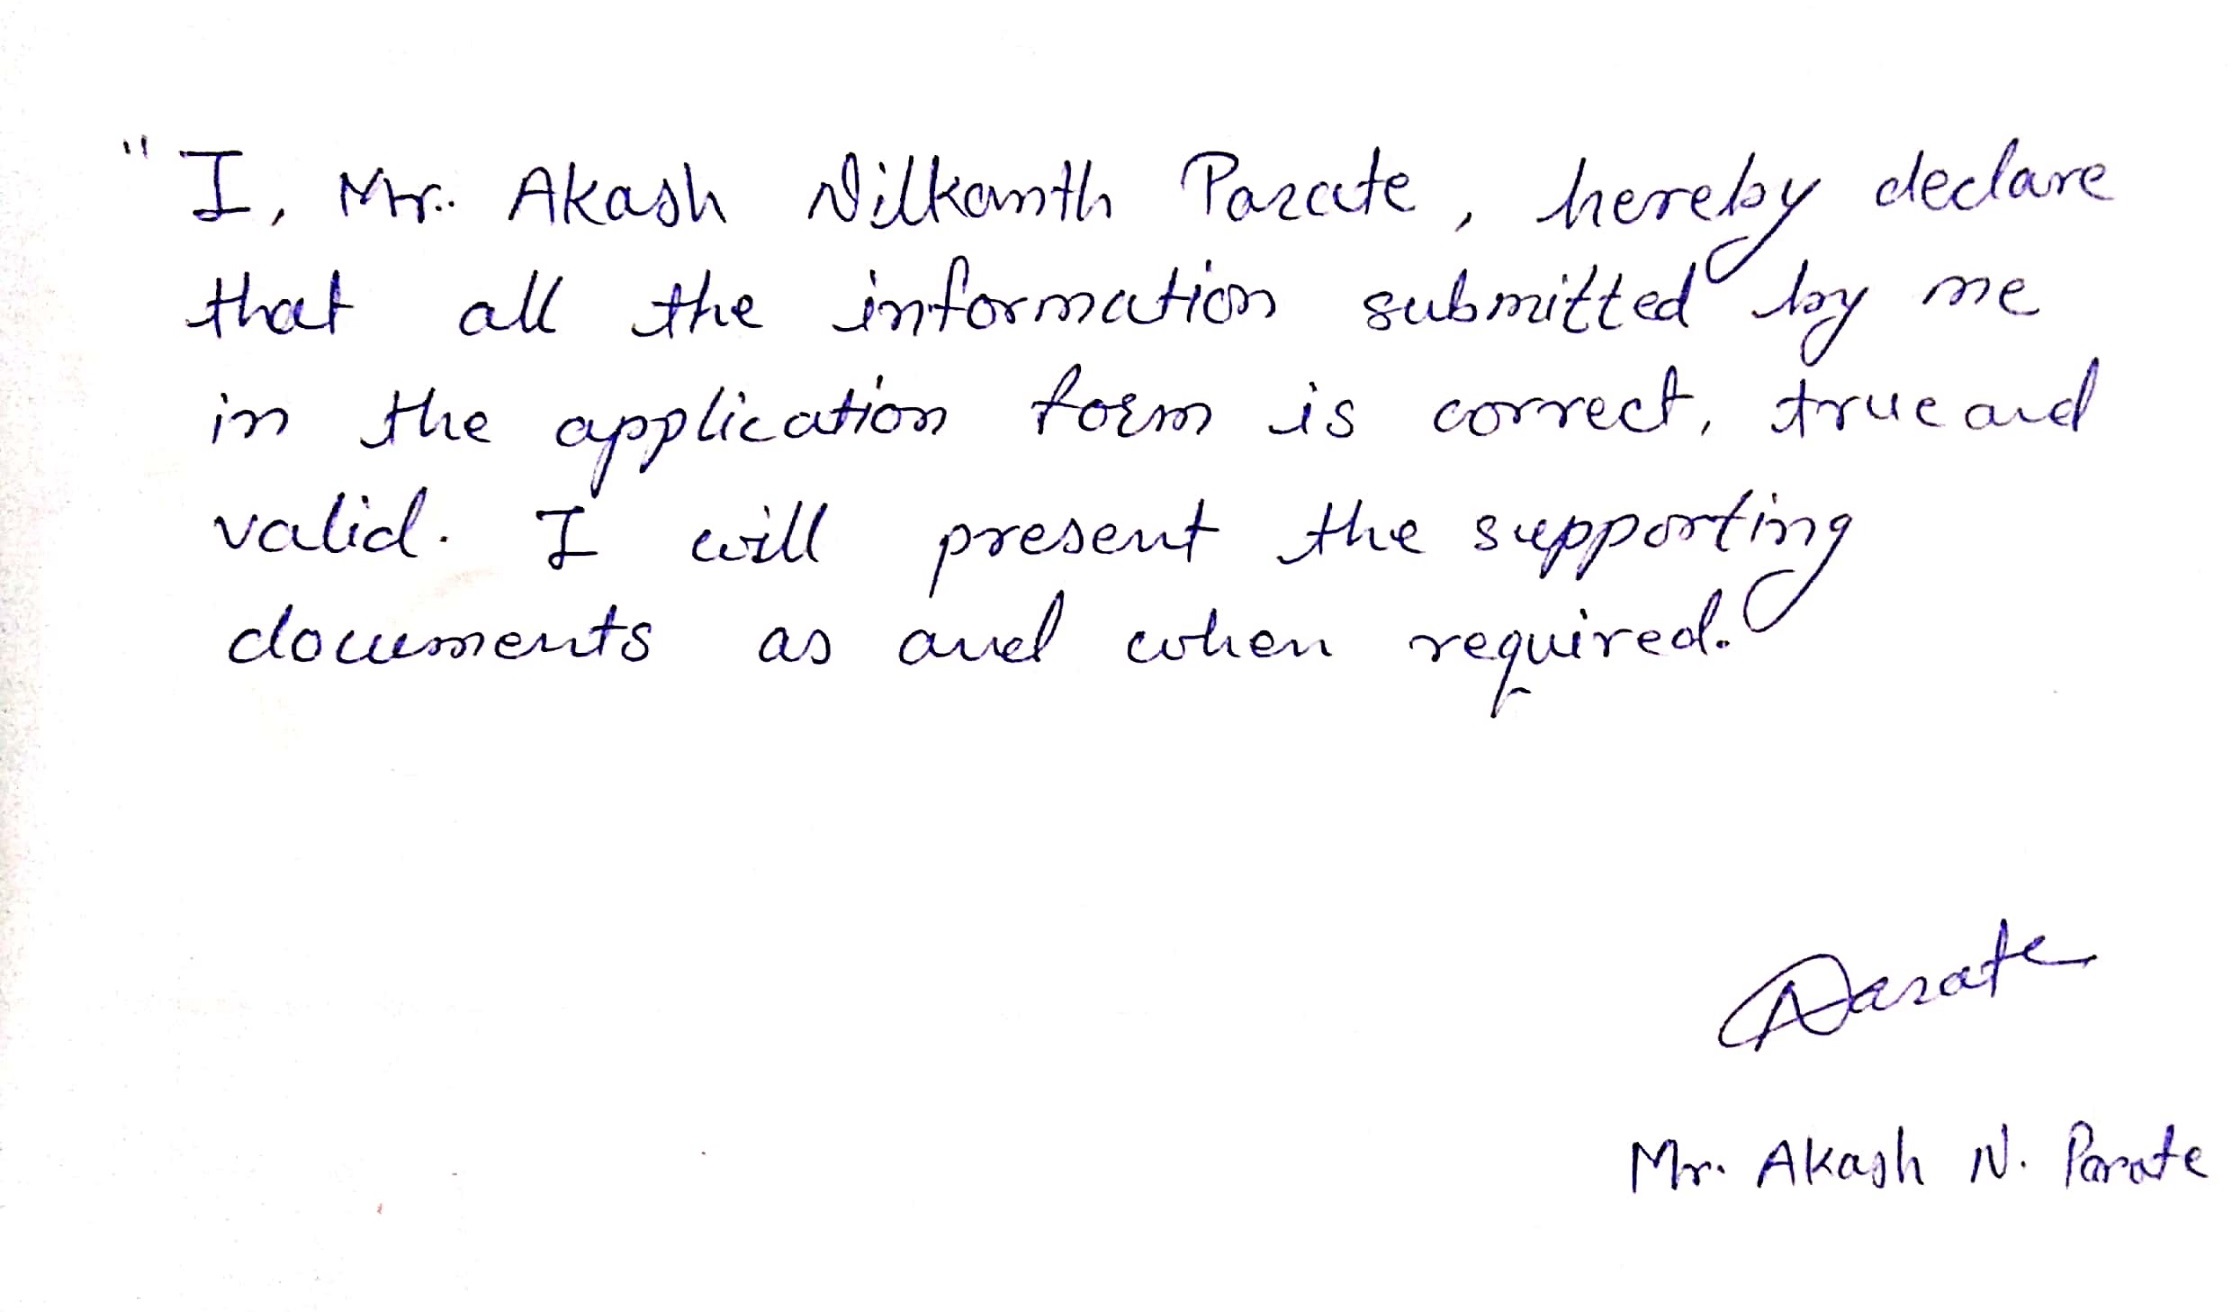 " I, Mr. Akash Nilkanth Parate, hereby declare
that all the information submitted by me
in the application form is correct, true and
valid. I will present the supporting
documents as and when required.
Parate
Mr. Akash N. Parate